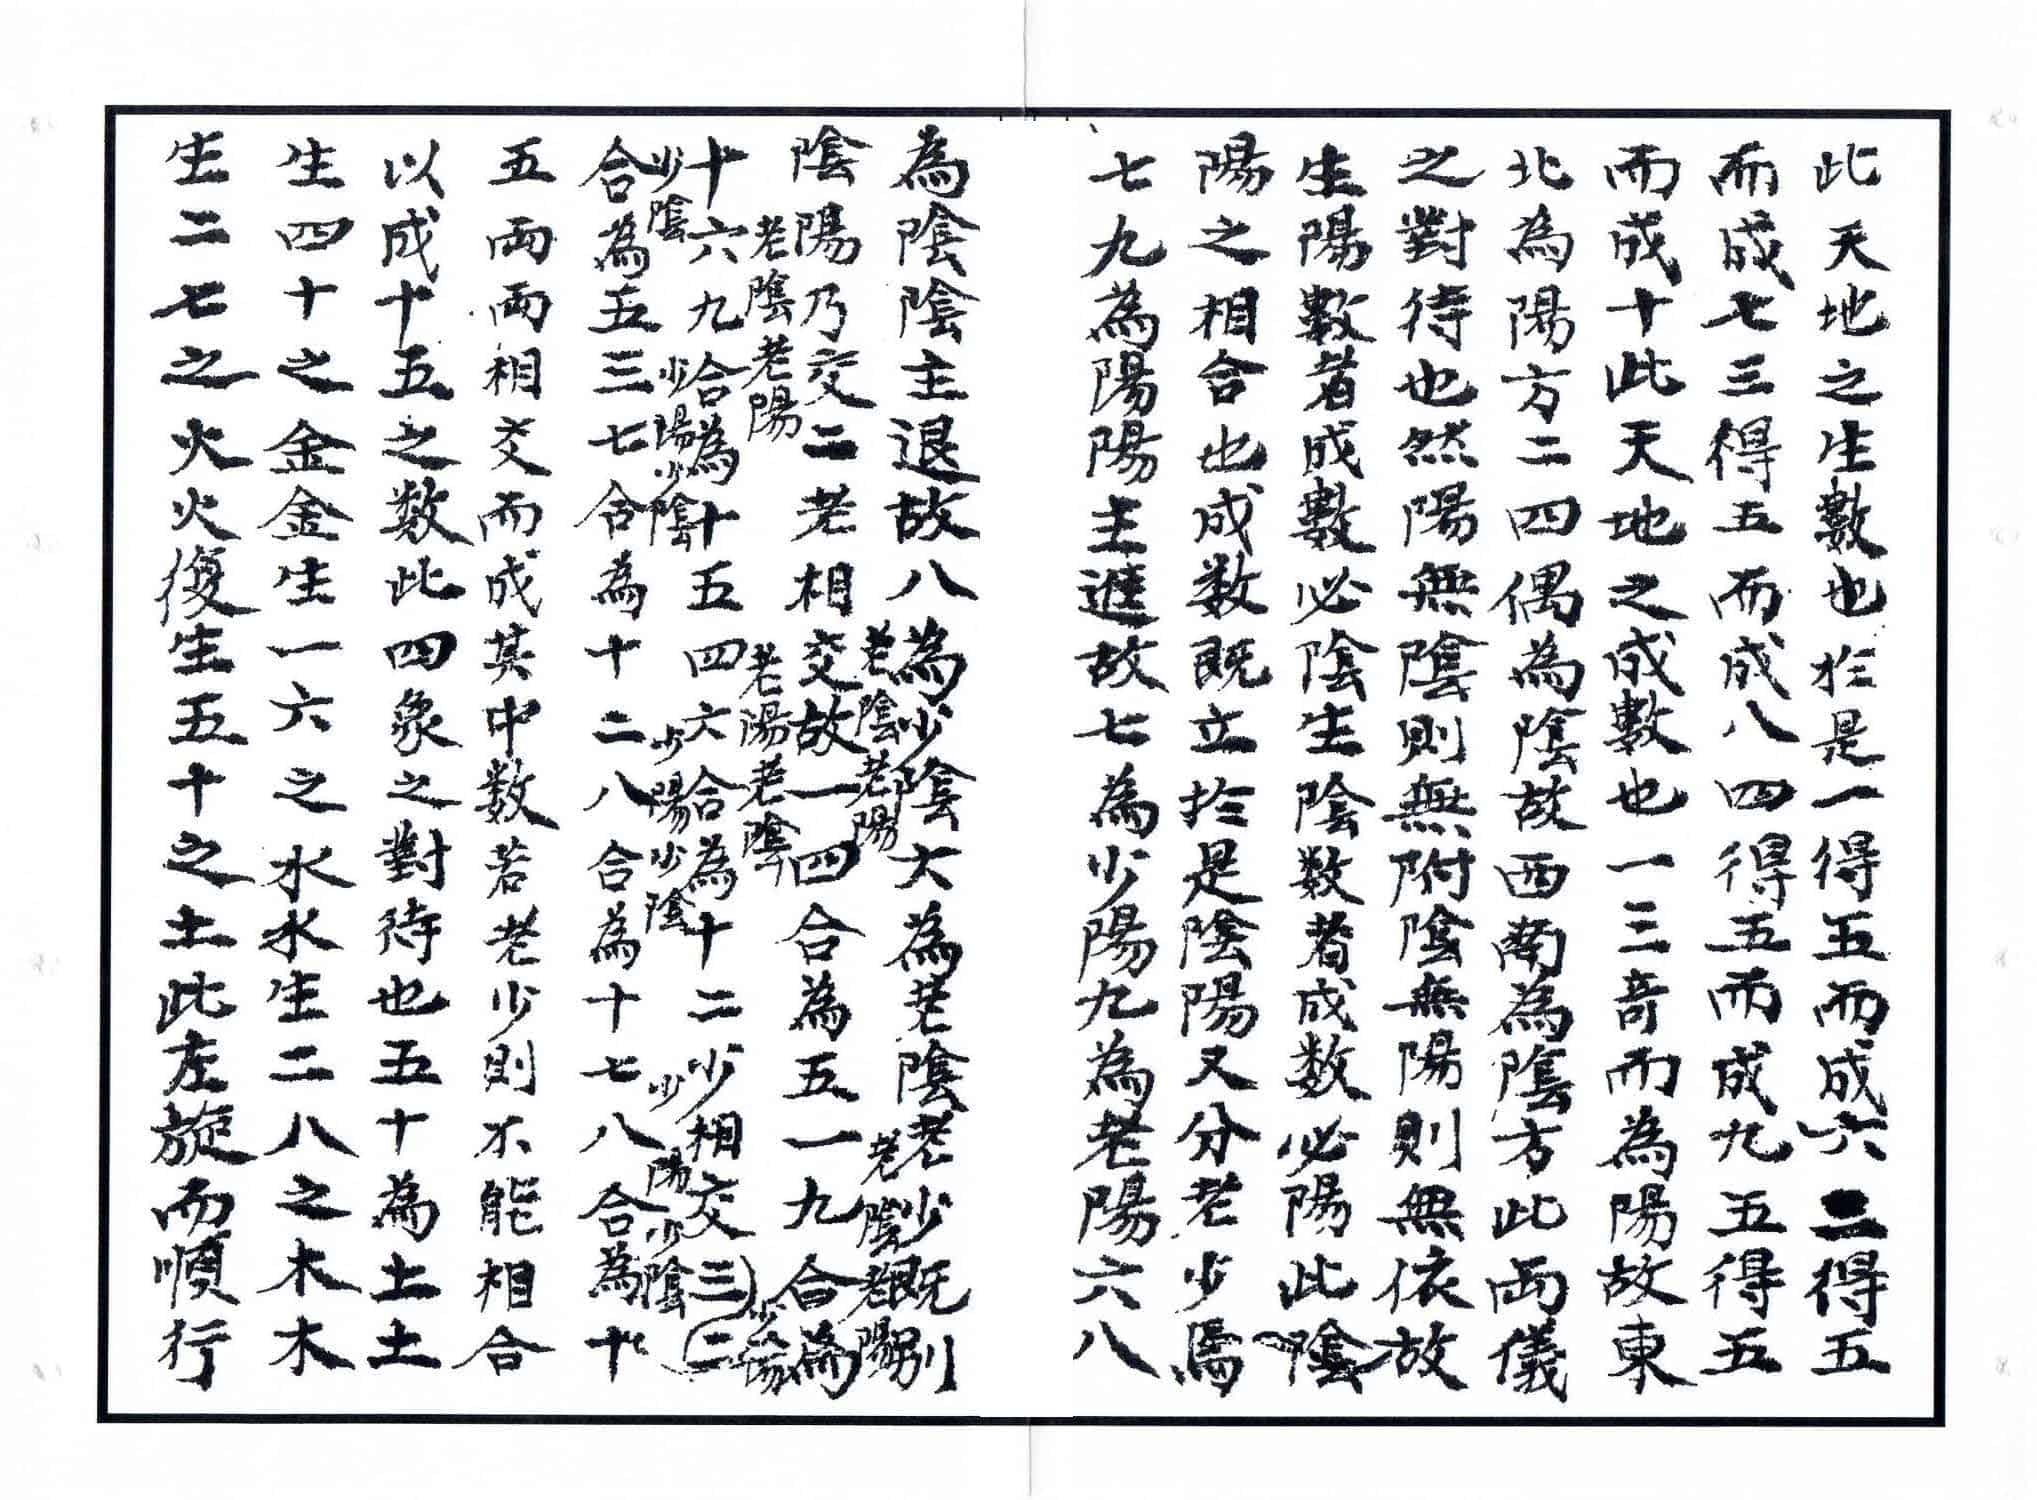 此天地之生數也於是一得五而成六二得五
而成七三得五而成八四得五而成九五得五
而成十此天地之成數也一三奇而為陽故東
北為陽方二四偶為陰故西南為陰方此両儀
之對待也然陽無陰則無附陰無陽則無依故
生陽數者成數必陰生陰数者成数必陽此陰
陽之相合也成数既立於是陰陽又分老少焉
七九為陽陽主進故七為少陽九為老陽六八
為陰陰主退故八為少陰六為老陰老少既別
老陰老陽 老陰老陽
陰陽乃交二老相交故一四合為五一九合為
老陰老陽 老陽老陰 少陽
十六九合為十五四六合為十二少相交三二
少陰 少陽少陰 少陽少陰 少陽少陰
合為五三七合為十二八合為十七八合為十
五両両相交而成其中数若老少則不能相合
以成十五之数此四象之對待也五十為土土
生四十之金金生一六之水水生二八之木木
生二七之火火復生五十之土此左旋而順行